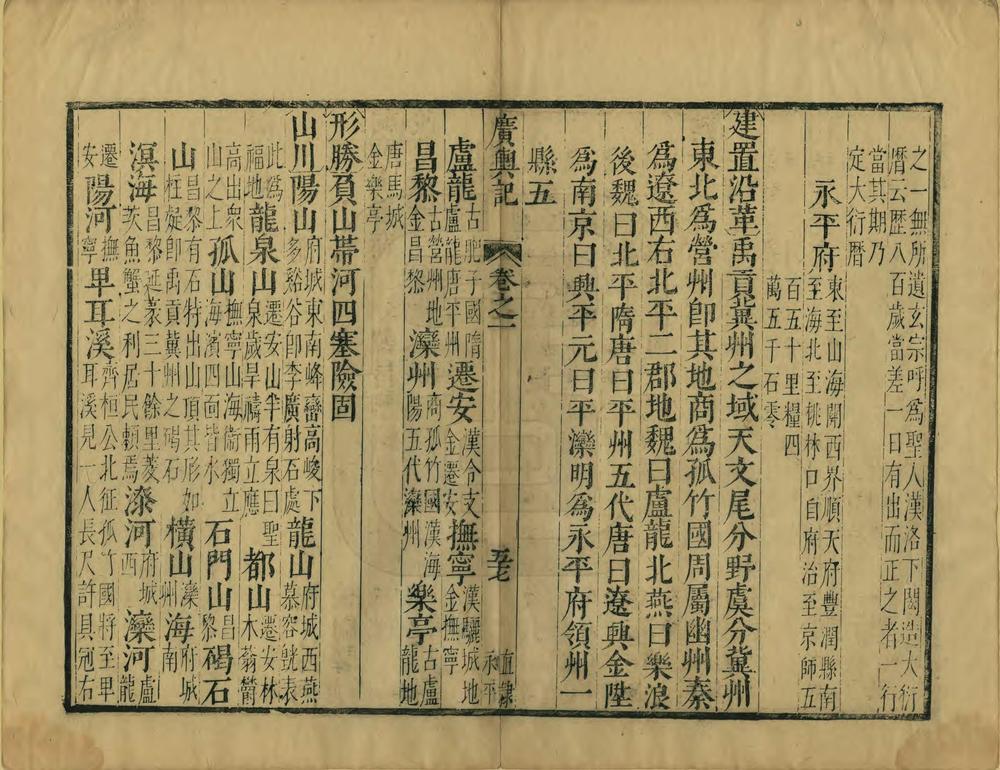 之一無所遺玄宗呼爲聖人漢洛下閎造大衍
曆云歷八百歲當差一日有出而正之者一行
當其期乃
定大衍曆
永平府
東至山海關西界順天府豐潤縣南
至海北至桃林口自府治至京師五
百五十里糧四
萬五千石零
建置沿革禹貢冀州之域天文尾分野虞分冀州
東北爲營州卽其地商爲孤竹國周屬幽州秦
爲遼西右北平二郡地魏曰盧龍北燕曰樂浪
後魏曰北平隋唐曰平州五代唐曰遼興金陞
爲南京曰興平元曰平灤明爲永平府領州一
縣五
廣輿記
卷之一
五七
直隸
永平
盧龍 古肥子國隋盧龍唐平州 遷安 漢令支金遷安 撫寧 漢驪城地金撫寧
昌黎 古營州地金昌黎 灤州 商孤竹國漢海陽五代灤州 樂亭 古盧龍地
唐馬城
金樂亭
形勝負山帶河四塞險固
山川陽山 府城東南峰巒高峻下多谿谷卽李廣射石處 龍山 府城西燕慕容皝表
此爲福地 龍泉山 遷安山半有泉曰聖泉歲旱禱雨立應 都山 遷安林木蓊鬱
高出衆山之上 孤山 撫寧山海衛獨立海濱四面皆水 石門山 昌黎 碣石
山 昌黎有石特出山頂其形如柱疑卽禹貢冀州之碣石 橫山 灤州 海 府城南
溟海 昌黎延袤三十餘里菱芡魚蟹之利居民賴焉 漆河 府城西 灤河 盧龍
遷安 陽河 撫寧 卑耳溪 齊桓公北征孤竹國將至卑耳溪見一人長尺許具冠右